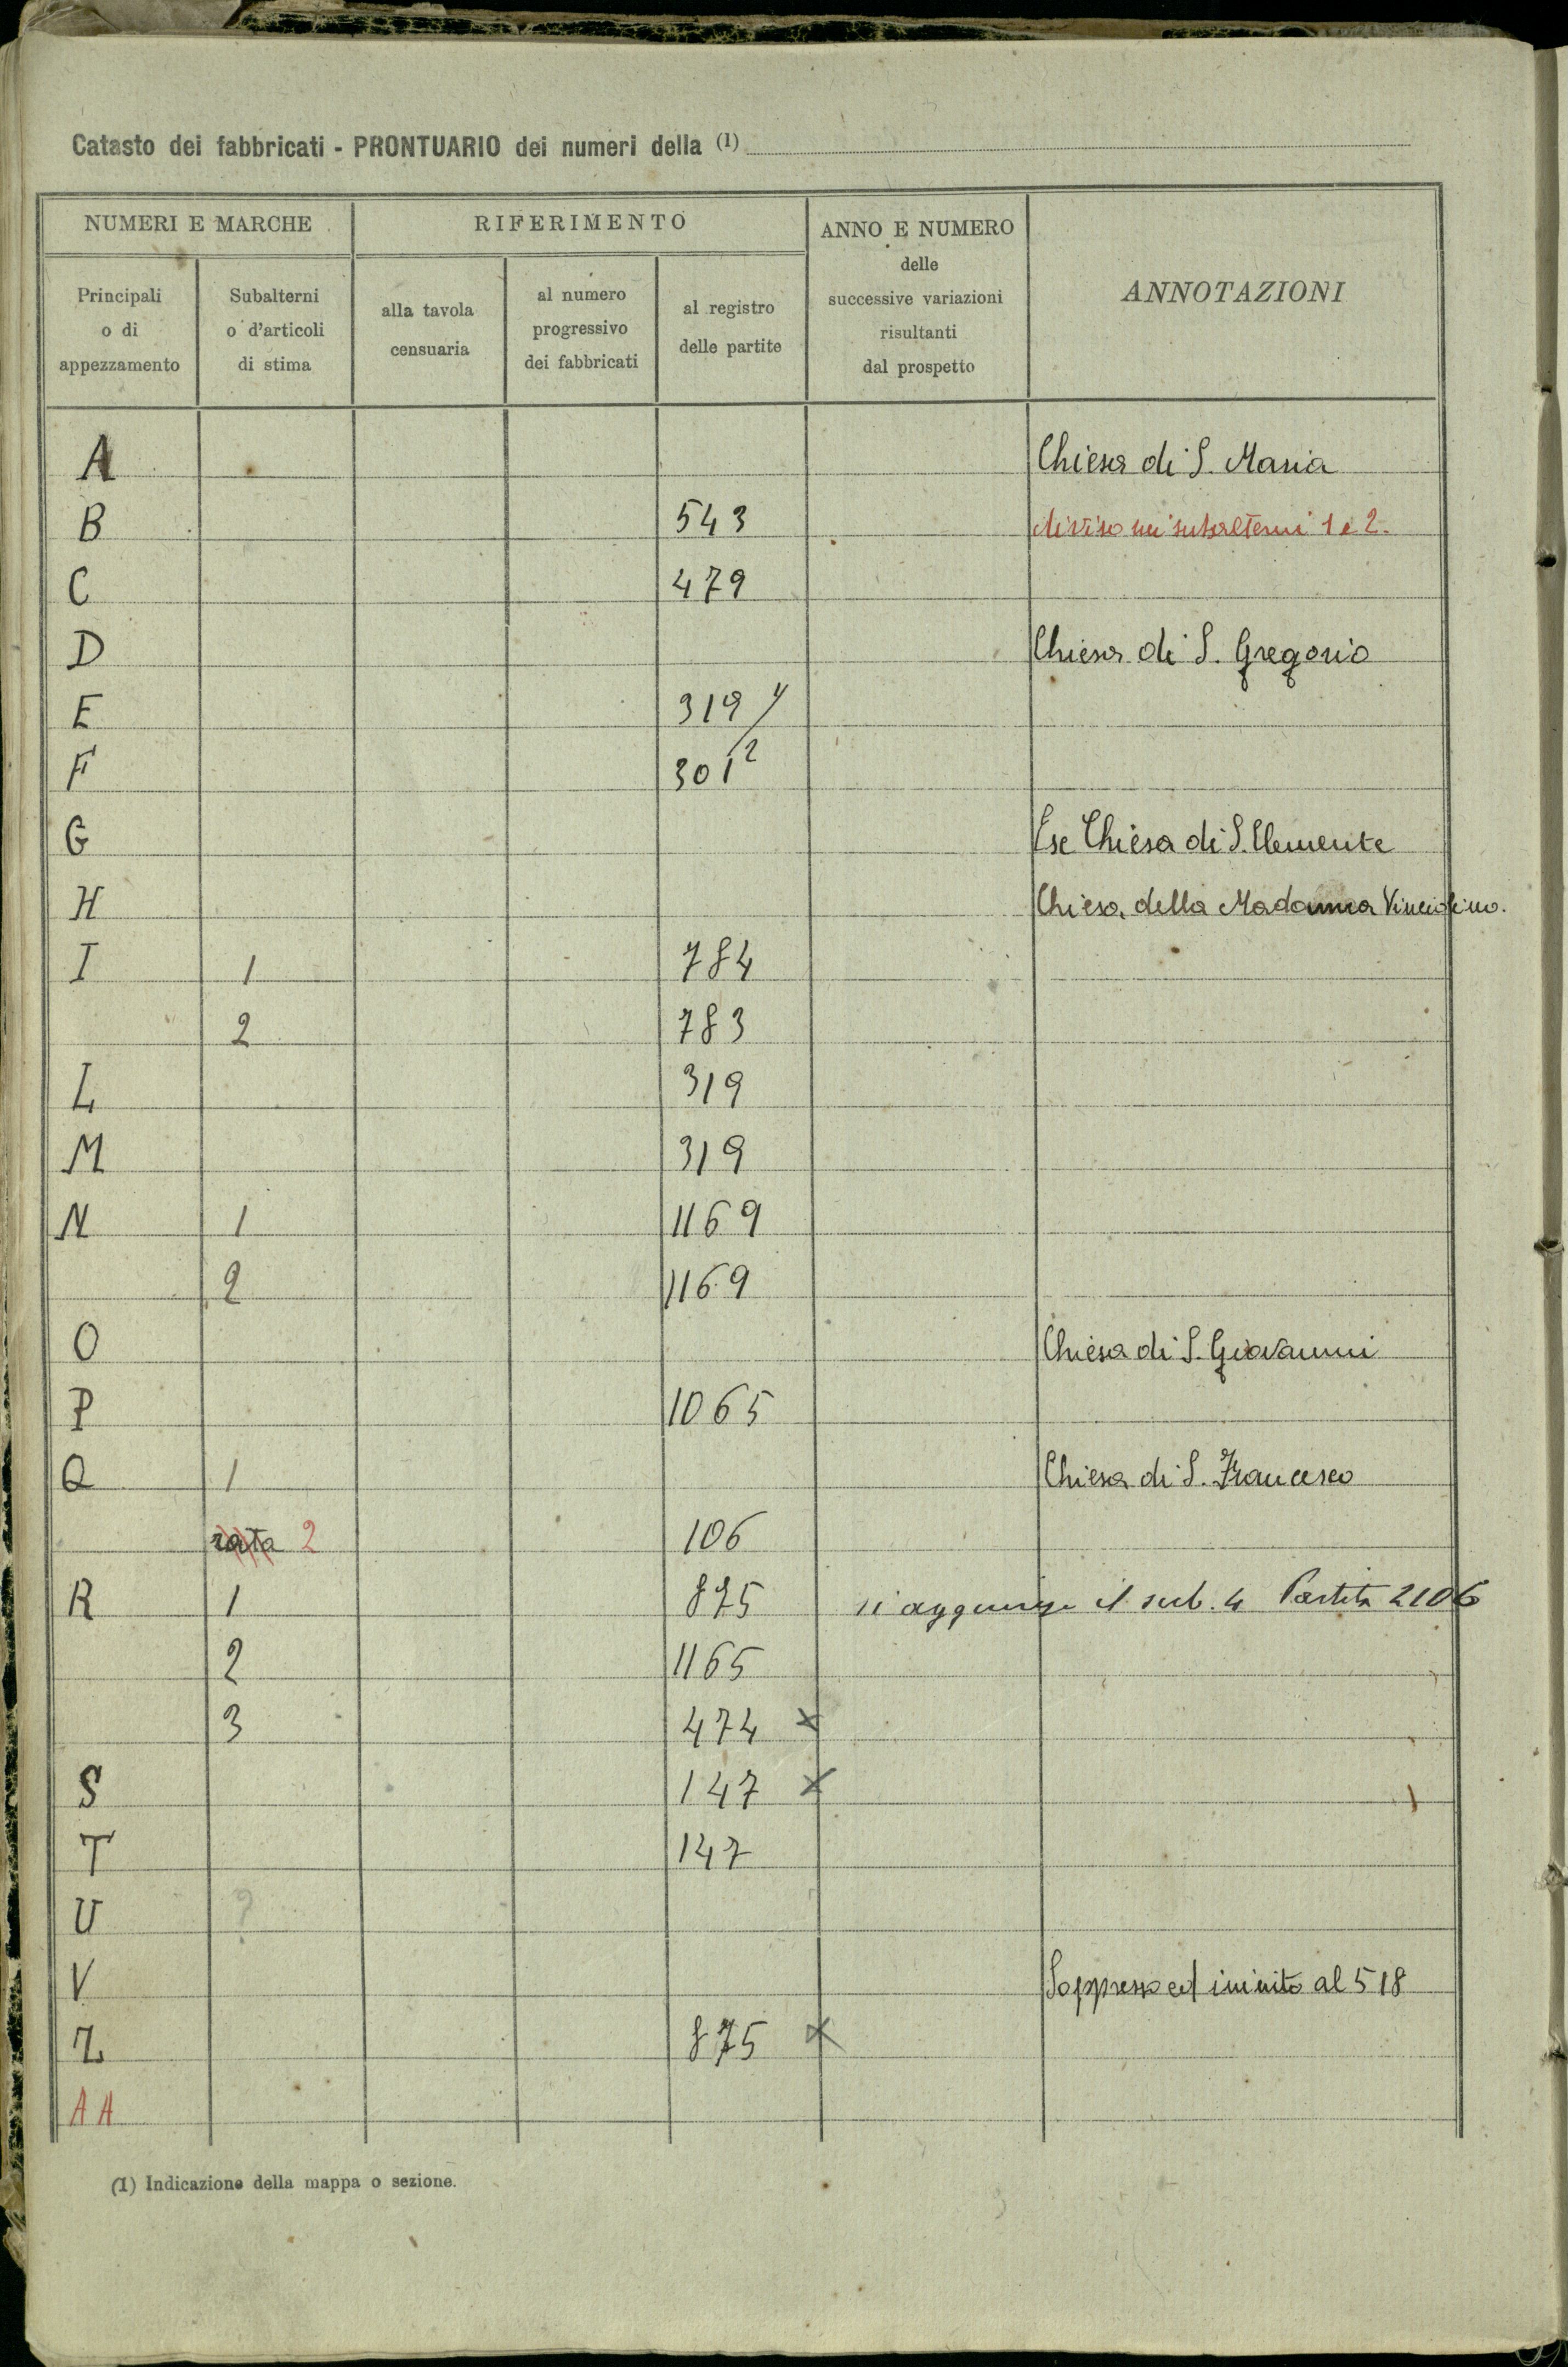 Catasto dei fabbricati - PRONTUARIO dei numeri della (1)
NUMERI E MARCHE
RIFERIMENTO
ANNO E NUMERO
delle
successive variazioni
risultanti
dal prospetto
ANNOTAZIONI
Principali
o di
appezzamento
Subalterni
o d'articoli
di stima
alla tavola
censuaria
al numero
progressivo
dei fabbricati
al registro
delle partite
A Chiesa di S. Maria
B 543 diviso nei subalterni 1 e 2.
C 479
D Chiesa di S. Gregorio
E 319
F 301 2
G Chiesa di S. Clemente
H Chiesa della Madonna
I 1 784
2 783
L 319
M 319
N 1 1169
2 1169
O Chiesa di S. Giovanni
P 1065
Q 1 Chiesa di S. Francesco
rata 2 106
R 1 875 si aggiunge il sub. 4 Partita 2106
2 1165
3 474 x
S 147 x
T 147
U ?
V Soppresso ed al 518
Z 875 x
AA
(1) Indicazione della mappa o sezione.